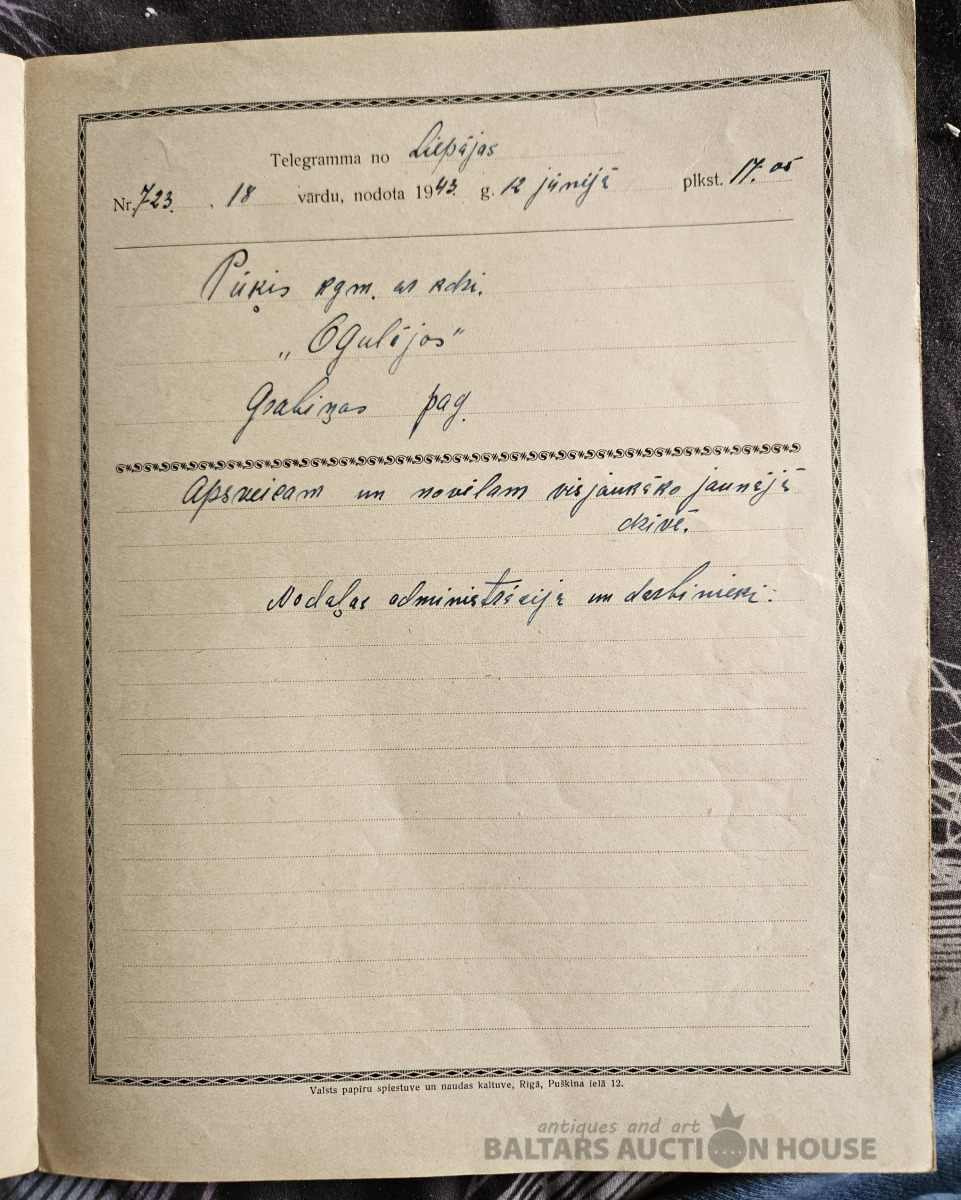 Telegramma no Liepājas
Nr. 723. , 18 vārdu, nodota 1943. g. 12 jūnijā plkst. 17.05
Pūķis kgm. ar kdzi.
„Ogulājos"
Grabiņas pag.
Apsveicam un novēlam visjaukāko jaunajā
dzīvē.
Nodaļas administrācija un darbinieki.
Valsts papīru spiestuve un naudas kaltuve, Rīgā, Puškina ielā 12.
antiques and art
BALTARS AUCTION HOUSE